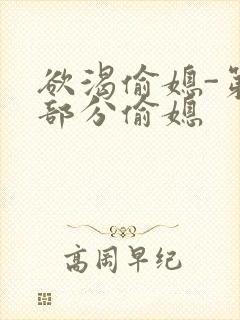 欲渴偷媳-第
部分偷媳
高岡早纪